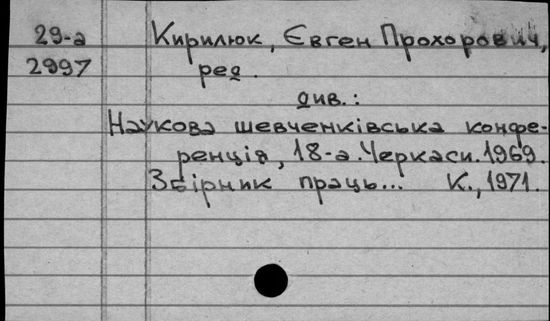 29-а Кирилюк, Євген Прохорович,
2997 ред.
див.:
Наукова шевченківська конфе-
ренція, 18-а. Черкаси. 1969.
Збірник праць... К., 1971.